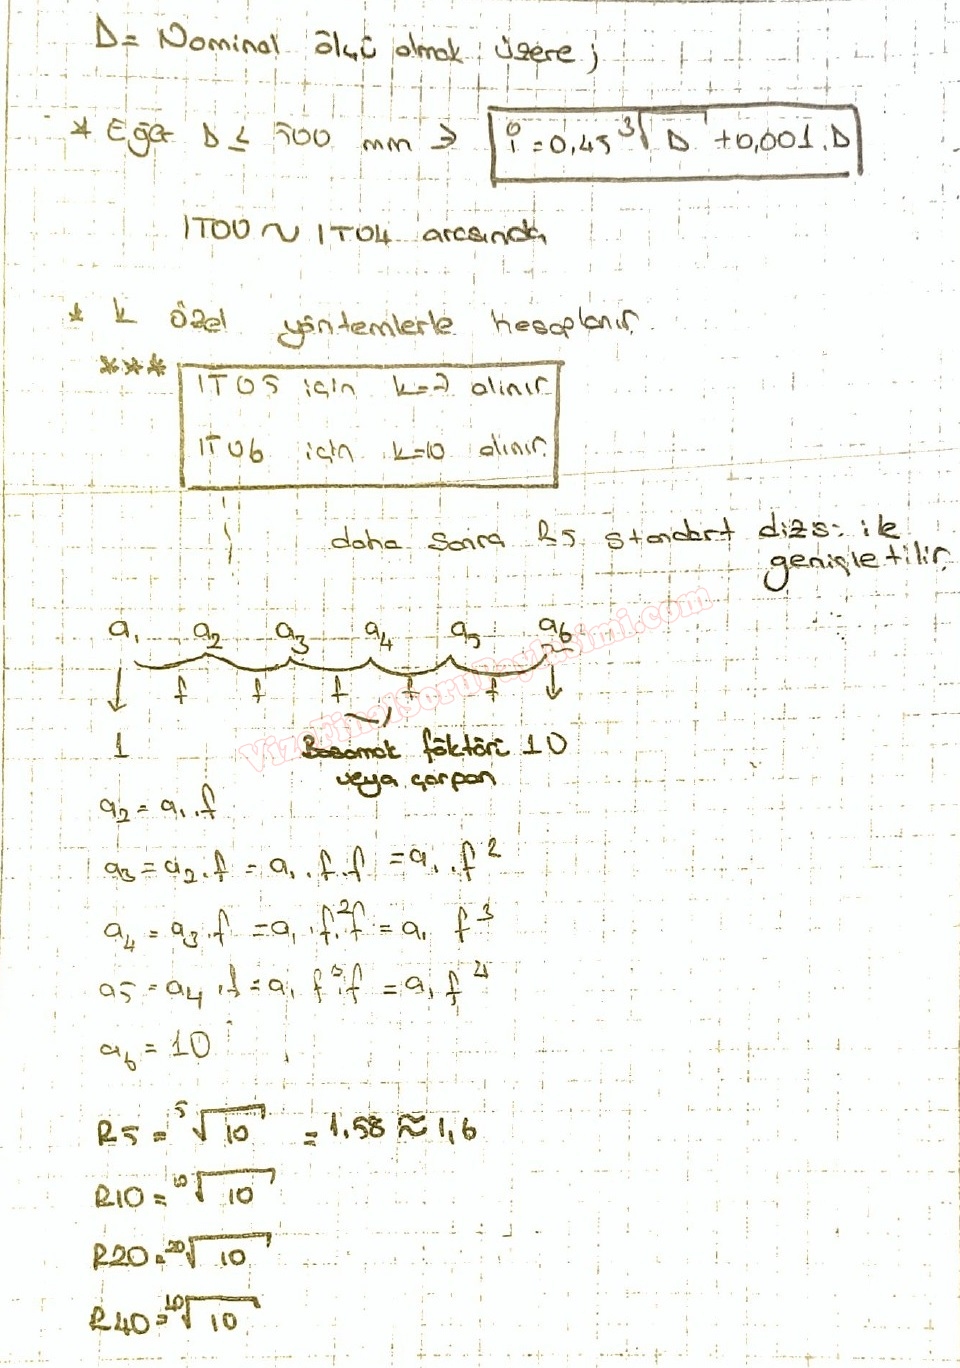 D = Nominal ölçü olmak üzere;
* Eğer D ≤ 500 mm ⇒ i = 0,45 ³√D + 0,001.D
IT00 ~ IT04 arasında
* k özel yöntemlerle hesaplanır.
*** IT05 için k=7 alınır.
IT06 için k=10 alınır.
daha sonra R5 standart dizsi ile
genişletilir.
a₁ a₂ a₃ a₄ a₅ a₆
f f f f f
1 Basamak faktörü 10
veya çarpan
VizeFinalSoruPaylasimi.com
a₂ = a₁.f
a₃ = a₂.f = a₁.f.f = a₁.f²
a₄ = a₃.f = a₁.f².f = a₁ f³
a5 = a₄.f = a₁ f³.f = a₁ f⁴
a₆ = 10
R5 = ⁵√10 = 1,58 ≈ 1,6
R10 = ¹⁰√10
R20 = ²⁰√10
R40 = √10